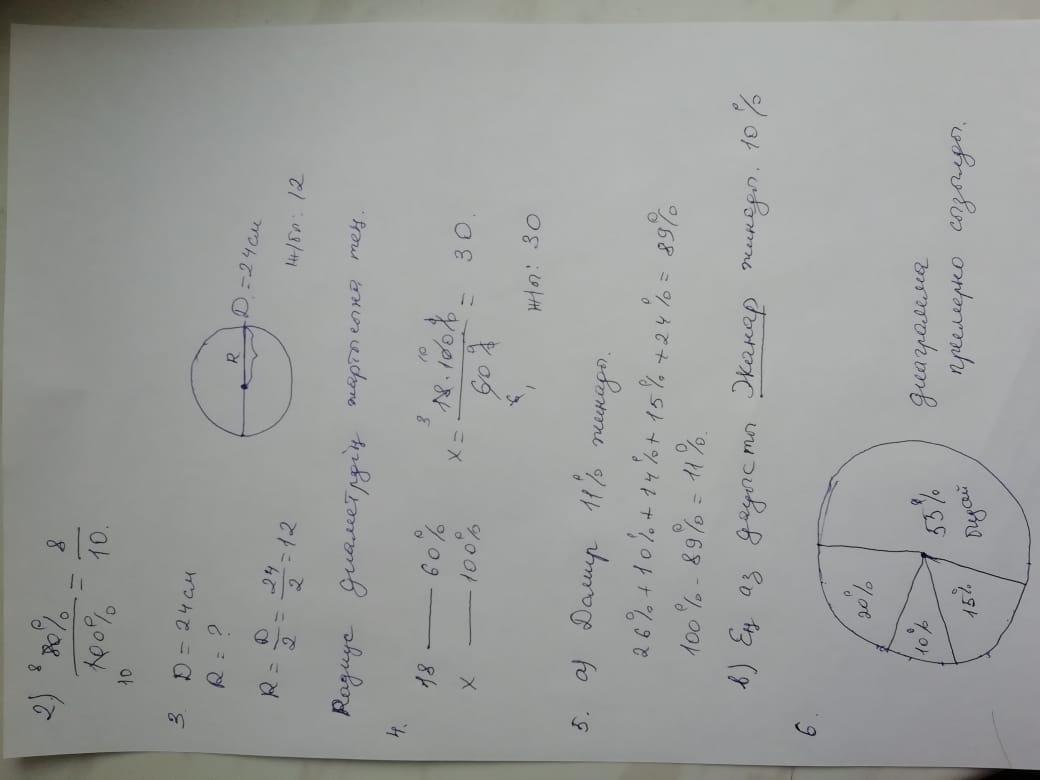 2) 8 80% / 100% 10 = 8/10.
3. D = 24 см
R = ?
R D. = 24 см
R = D/2 = 24/2 = 12
Ж/бы: 12
Радиус диаметрдің жартысына тең.
4. 18 — 60%
x — 100%
x = 3 18 · 10 100% / 60% 6, = 30.
Ж/ы: 30
5. а) Дамир 11% жинады.
26% + 10% + 14% + 15% + 24% = 89%
100% - 89% = 11%.
в) Ең аз дауысты Жанар жинады. 10%
6.
20%
10%
15%
55% бидай
диаграмма
примерно сызылды.